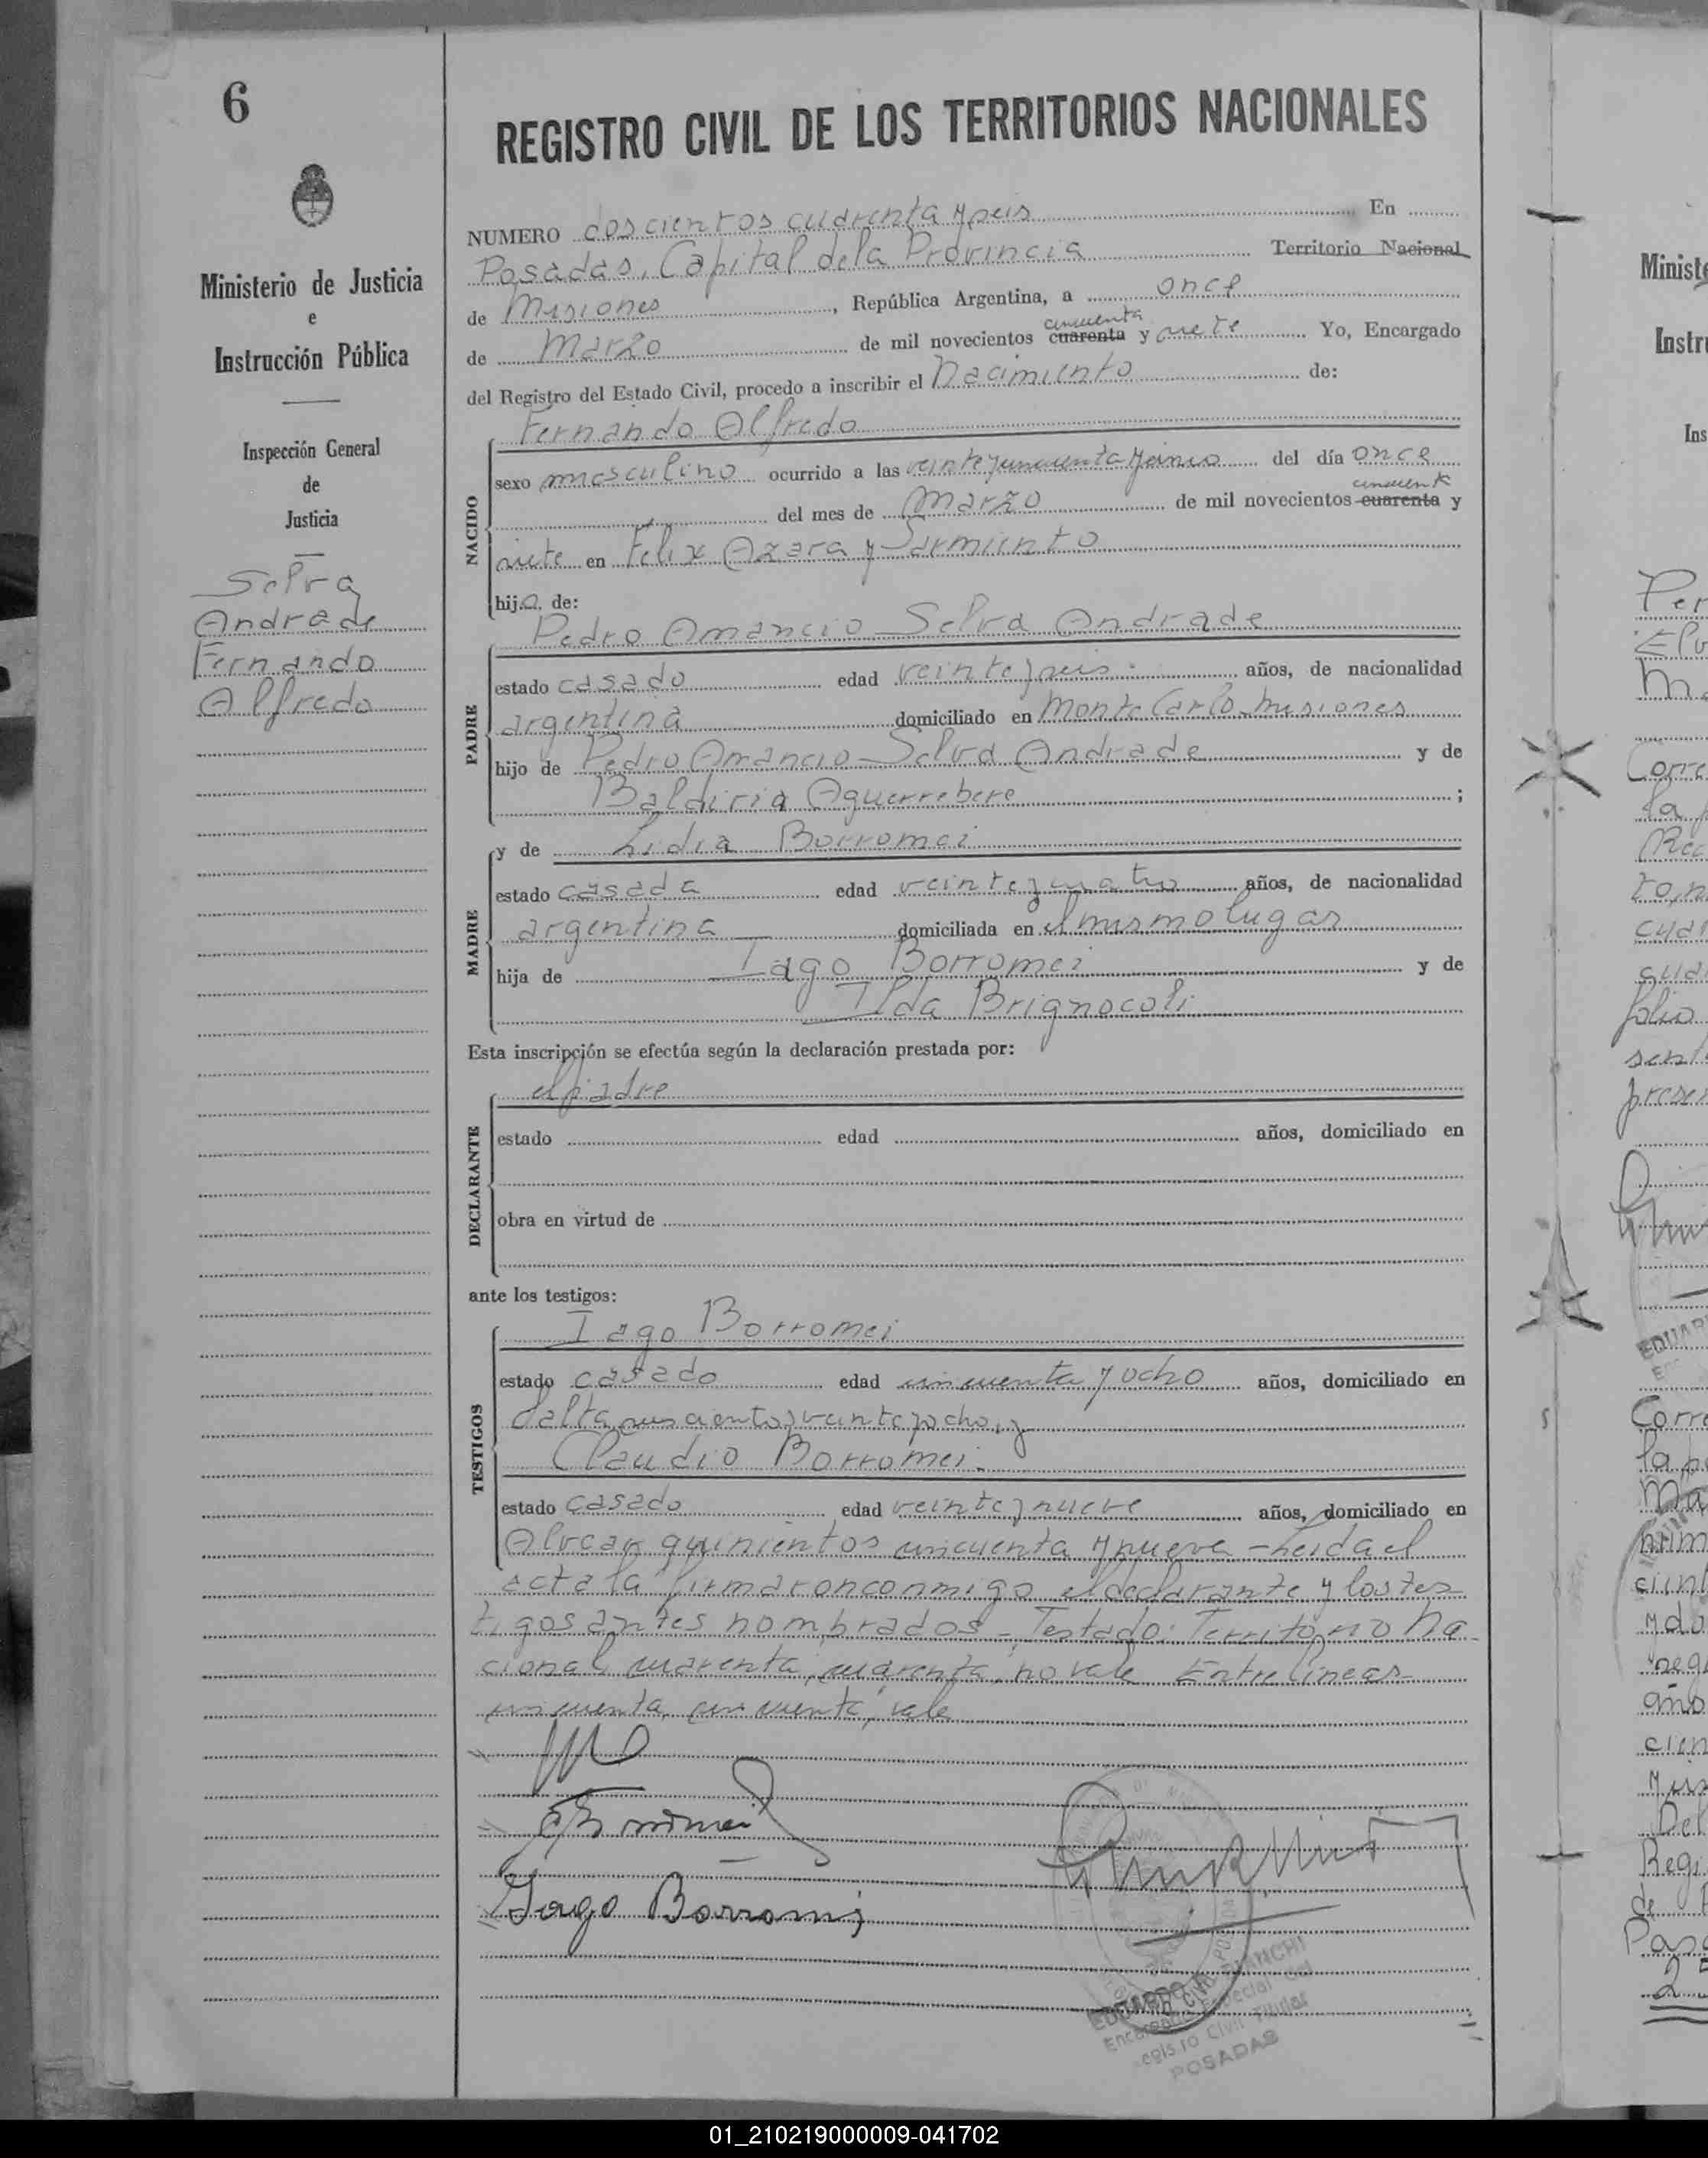 6
REGISTRO CIVIL DE LOS TERRITORIOS NACIONALES
Ministerio de Justicia
e
Instrucción Pública
Inspección General
de
Justicia
Selva
Andrade
Fernando
Alfredo
NUMERO doscientos cuarenta y seis En
Posadas, Capital de la Provincia Territorio Nacional
de Misiones, República Argentina, a once
cincuenta
de Marzo de mil novecientos cuarenta y siete Yo, Encargado
del Registro del Estado Civil, procedo a inscribir el Nacimiento de:
NACIDO
Fernando Alfredo
sexo masculino ocurrido a las veinte y cincuenta y cinco del día once
cincuenta
del mes de Marzo de mil novecientos cuarenta y
siete en Félix Azara y Sarmiento
hijo. de:
PADRE
Pedro Amancio Selva Andrade
estado casado edad veinte y seis años, de nacionalidad
argentina domiciliado en Monte Carlo-Misiones
hijo de Pedro Amancio Selva Andrade y de
Baldiria Aguerrebere ;
MADRE
y de Lidia Borromei
estado casada edad veinte y cuatro años, de nacionalidad
argentina domiciliada en el mismo lugar
hija de Iago Borromei y de
Ilda Brignocoli
Esta inscripción se efectúa según la declaración prestada por:
DECLARANTE
el padre
estado edad años, domiciliado en
obra en virtud de
ante los testigos:
TESTIGOS
Iago Borromei
estado casado edad cincuenta y ocho años, domiciliado en
Salta seis cientos veinte y ocho, y
Claudio Borromei.
estado casado edad veinte y nueve años, domiciliado en
Alvear quinientos cincuenta y nueve - Leida el
acta la firmaron conmigo el declarante y los tes-
tigos antes nombrados - Testado: Territorio Na-
cional cuarenta, cuarenta, no vale Entre líneas-
cincuenta, cincuenta, vale
Iago Borromei
Encargado Especial del
Registro Civil Titular
POSADAS
01_210219000009-041702